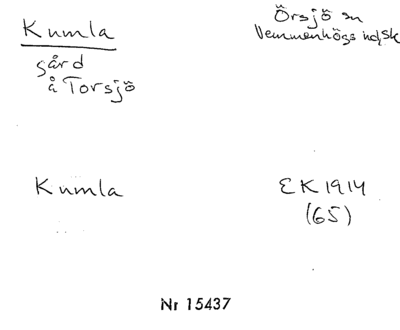 Kumla
gård
å Torsjö
Örsjö sn
Vemmenhögs hd, Sk
Kumla
EK 1914
(65)
Nr 15437